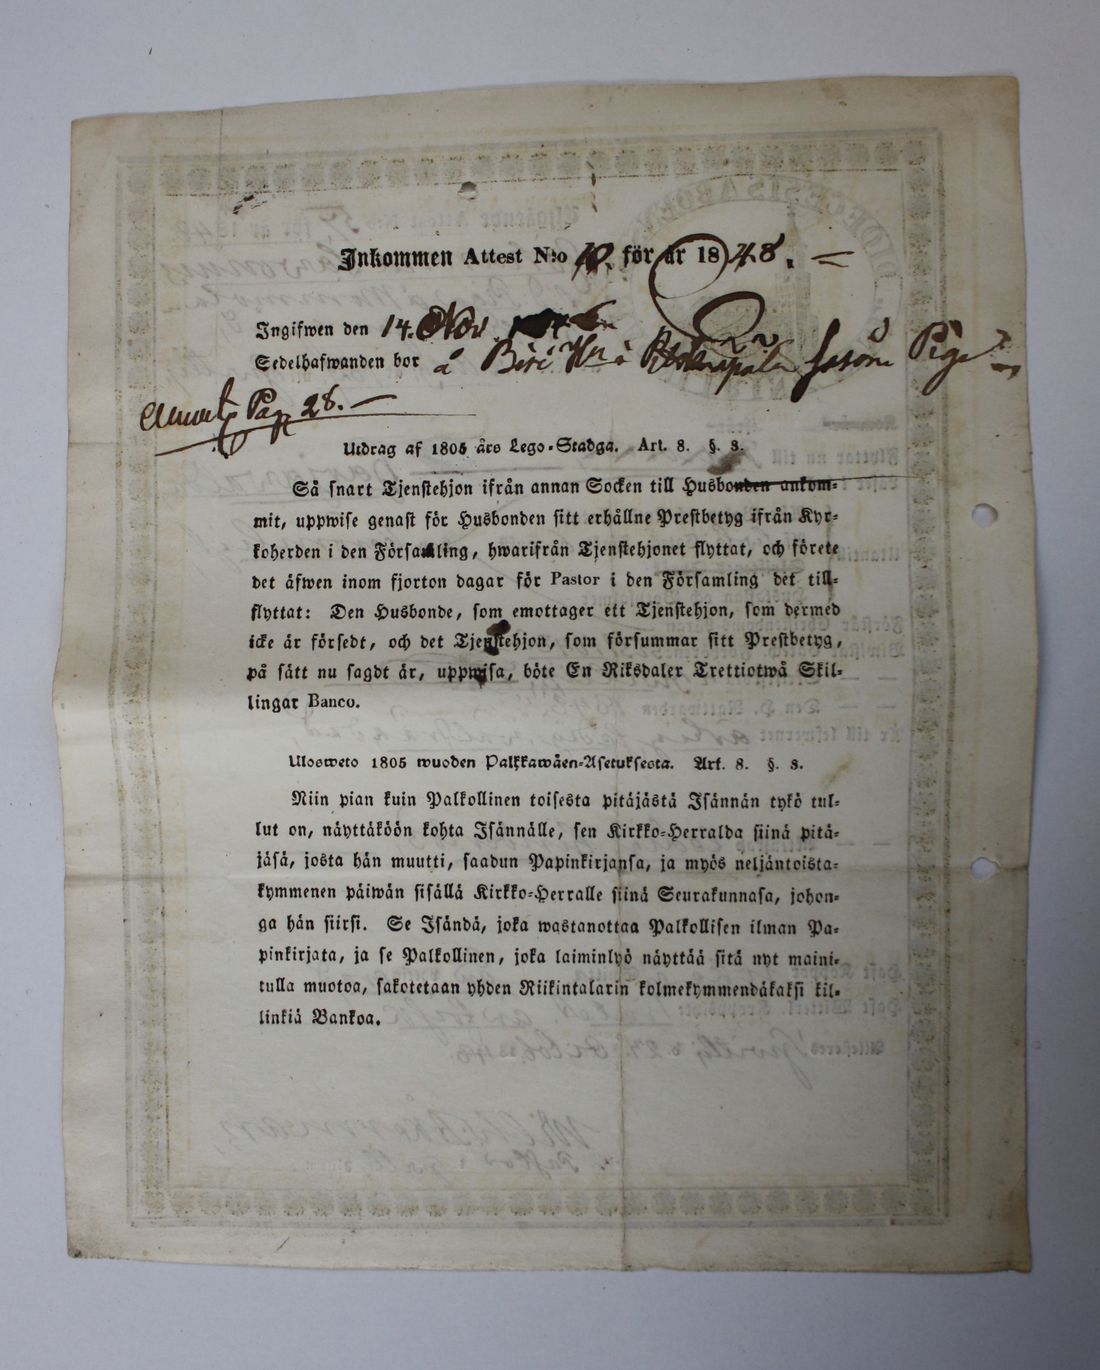 Inkommen Attest N:o 10. för år 1848.
Ingifwen den 14. Nov.
Sedelhafwanden bor å såsom Piga
Pag. 28.
Utdrag af 1805 års Lego-Stadga. Art. 8. §. 3.
Så snart Tjenstehjon ifrån annan Socken till Husbonden ankom-
mit, uppwise genast för Husbonden sitt erhållne Prestbetyg ifrån Kyr-
koherden i den Församling, hwarifrån Tjenstehjonet flyttat, och förete
det äfwen inom fjorton dagar för Pastor i den Församling det till-
flyttat: Den Husbonde, som emottager ett Tjenstehjon, som dermed
icke är försedt, och det Tjenstehjon, som försummar sitt Prestbetyg,
på sätt nu sagdt är, uppwisa, böte En Riksdaler Trettiotwå Skil-
lingar Banco.
Ulosweto 1805 wuoden Palkkawäen-Asetuksesta. Art. 8. §. 3.
Niin pian kuin Palkollinen toisesta pitäjästä Isännän tykö tul-
lut on, näyttäköön kohta Isännälle, sen Kirkko-Herralda siinä pitä-
jäsä, josta hän muutti, saadun Papinkirjansa, ja myös neljäntoista-
kymmenen päiwän sisällä Kirkko-Herralle siinä Seurakunnasa, johon-
ga hän siirsi. Se Isändä, joka wastanottaa Palkollisen ilman Pa-
pinkirjata, ja se Palkollinen, joka laiminlyö näyttää sitä nyt maini-
tulla muotoa, sakotetaan yhden Riikintalarin kolmekymmendäkaksi kil-
linkiä Bankoa.